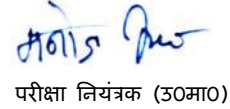 मनोज
परीक्षा नियंत्रक (उ०मा०)